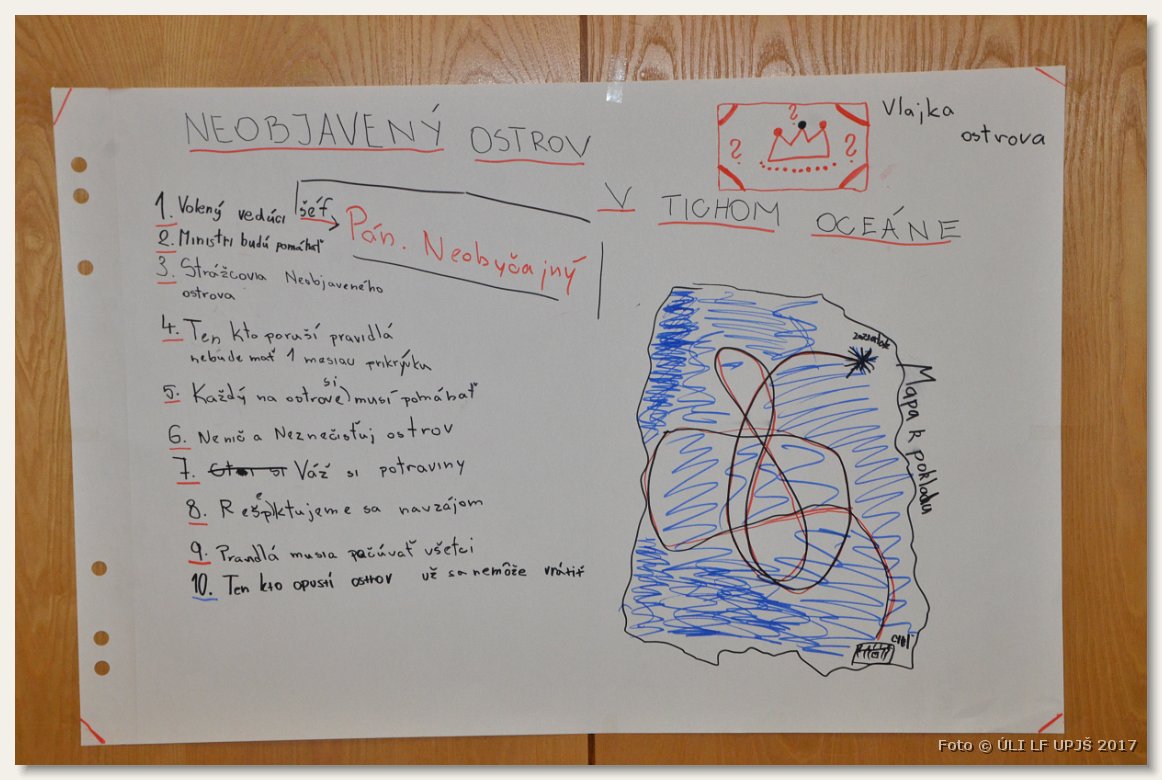 NEOBJAVENÝ OSTROV
V TICHOM OCEÁNE
Vlajka
ostrova
1. Volený vedúci šéf
Pán. Neobyčajný
2. Ministri budú pomáhať
3. Strážcovia Neobjaveného
ostrova
4. Ten kto poruší pravidlá
nebude mať 1 mesiac prikrývku
5. Každý na ostrove si musí pomáhať
6. Nenič a Neznečisťuj ostrov
7. Váž si potraviny
8. Rešpektujeme sa navzájom
9. musia počúvať všetci
10. Ten kto opustí ostrov už sa nemôže vrátiť
začiatok
Mapa k pokladu
cieľ
Foto © ÚLI LF UPJŠ 2017